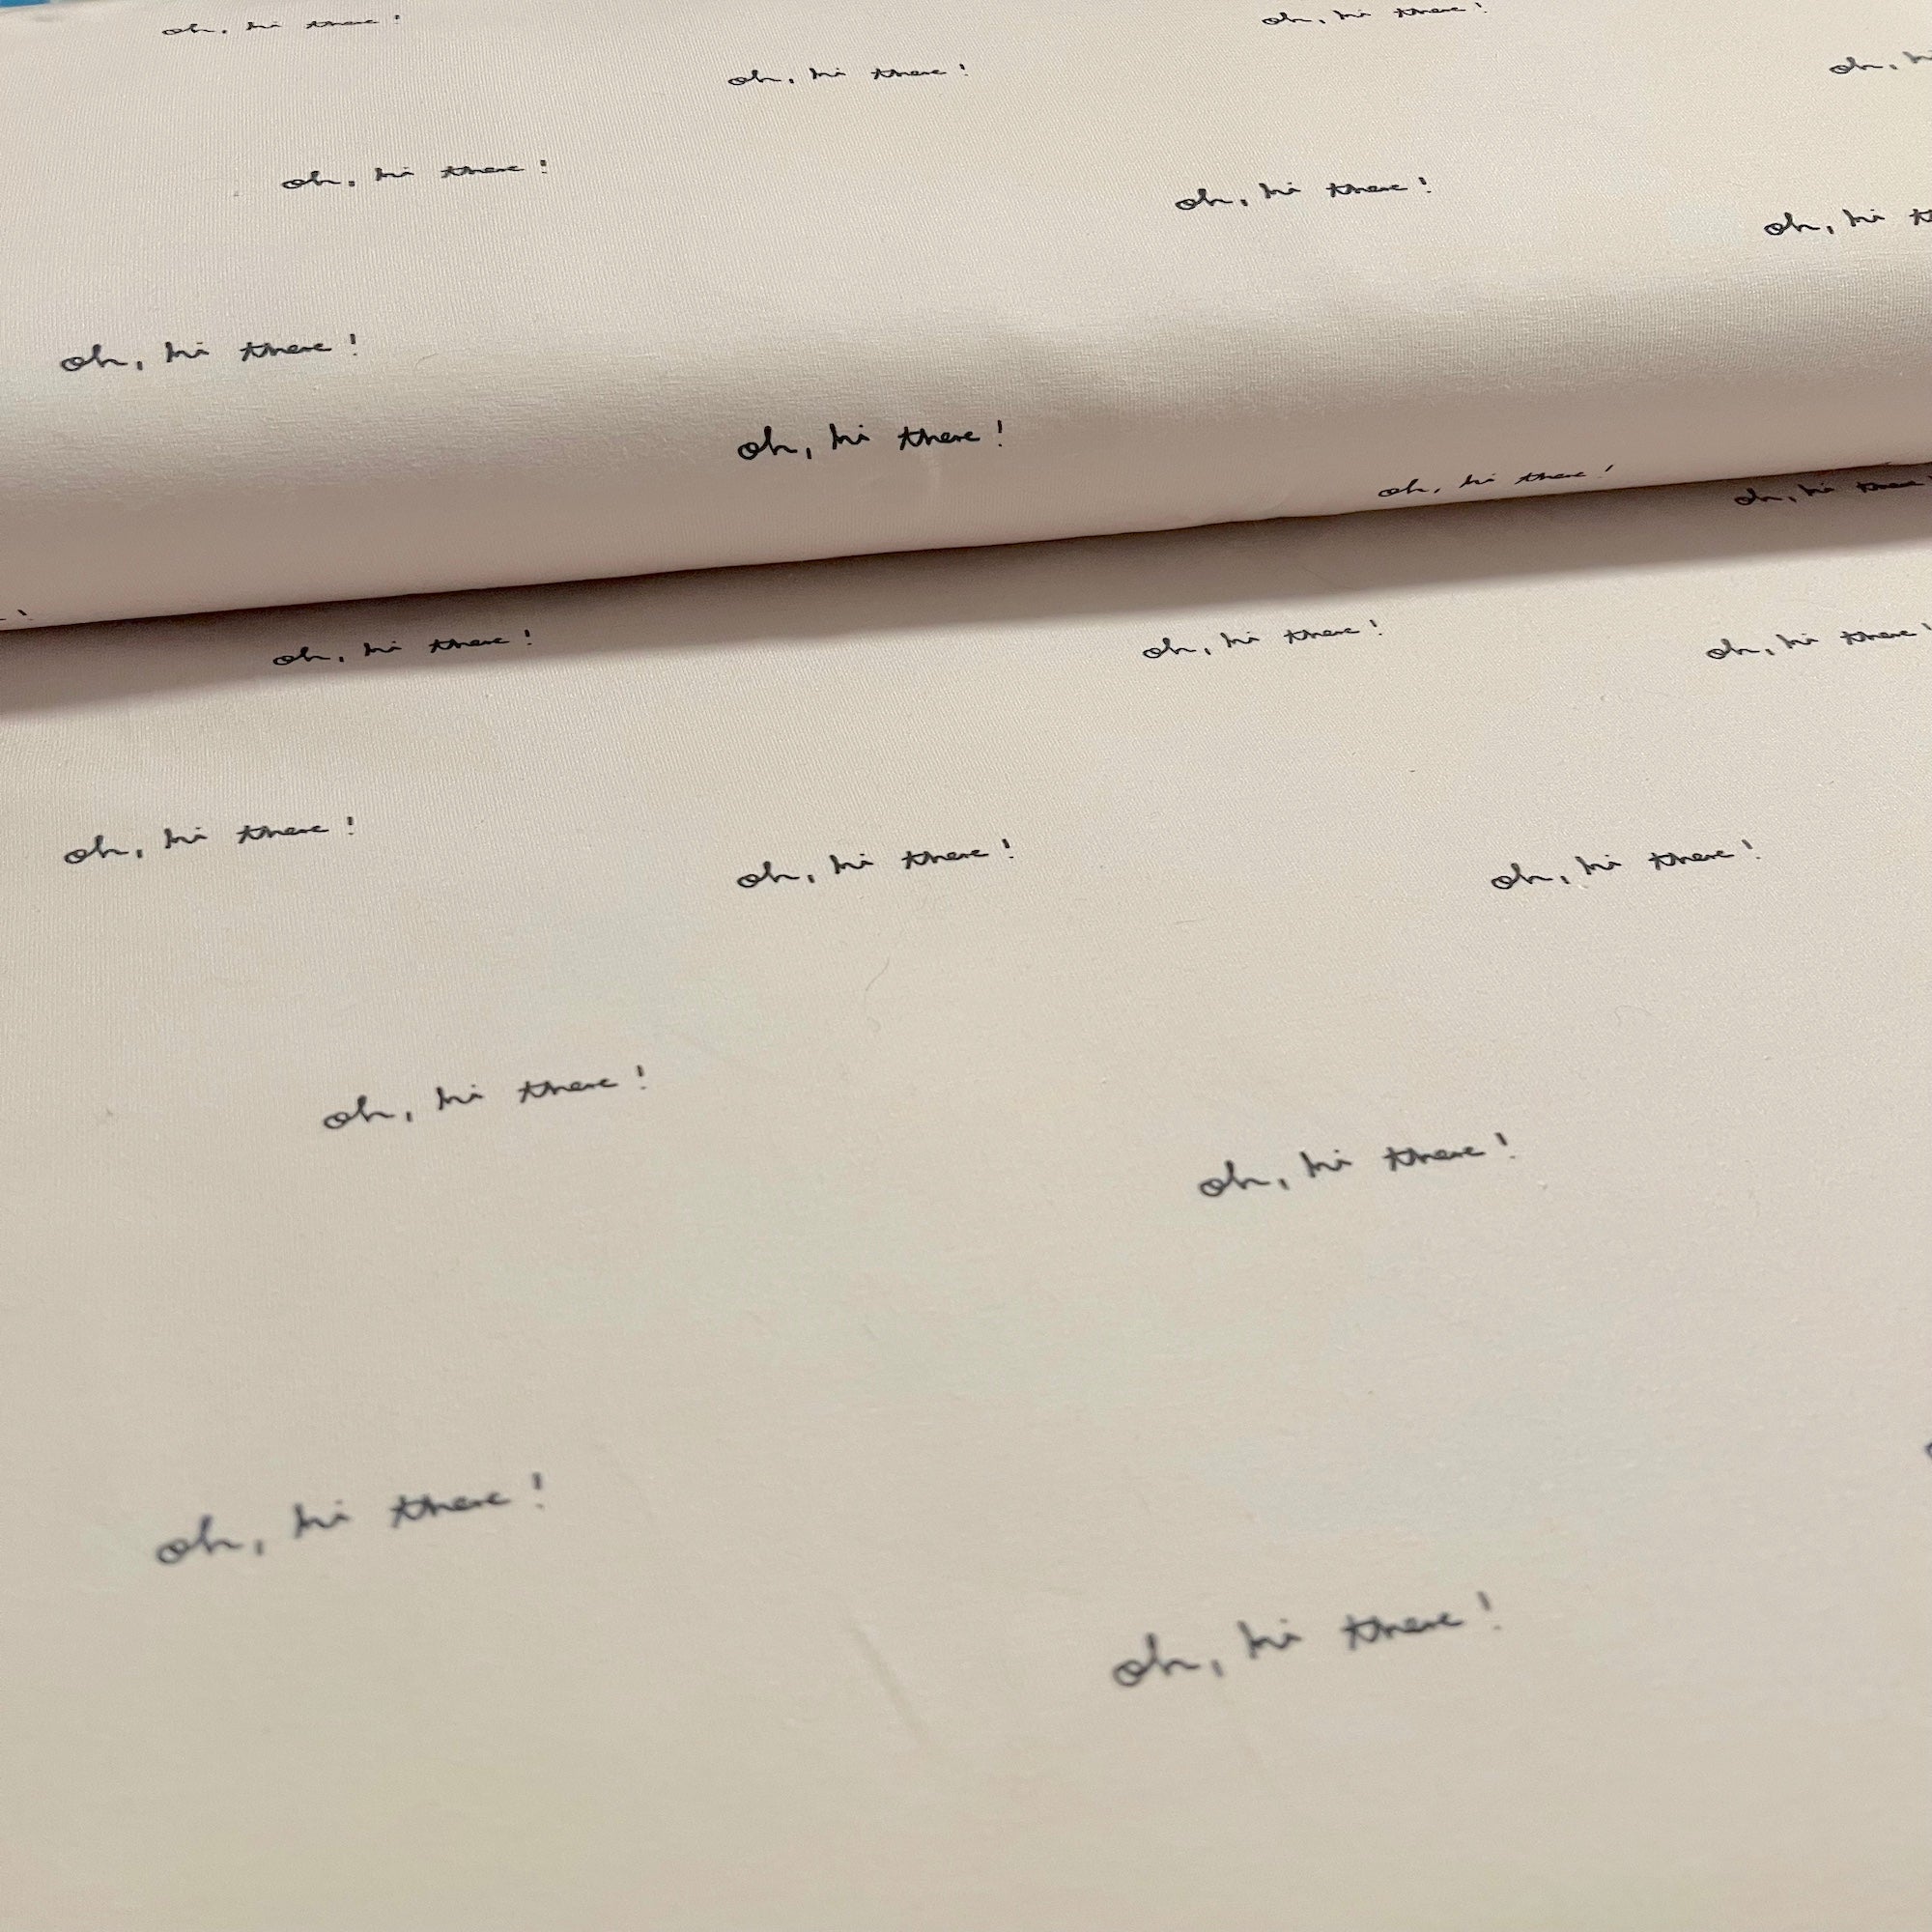 oh, hi there!
oh, hi there!
oh, hi there!
oh, hi
oh, hi there!
oh, hi there!
oh, hi
oh, hi there!
oh, hi there!
oh, hi there!
oh, hi there!
!
oh, hi there!
oh, hi there!
oh, hi there!
oh, hi there!
oh, hi there!
oh, hi there!
oh, hi there!
oh, hi there!
oh, hi there!
oh, hi there!